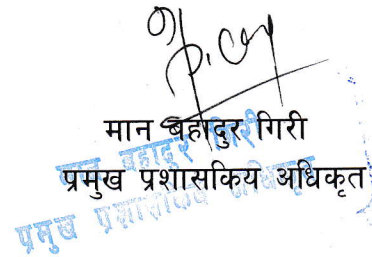 मान बहादुर गिरी
प्रमुख प्रशासकिय अधिकृत
मान बहादुर गिरी
प्रमुख प्रशासकिय अधिकृत